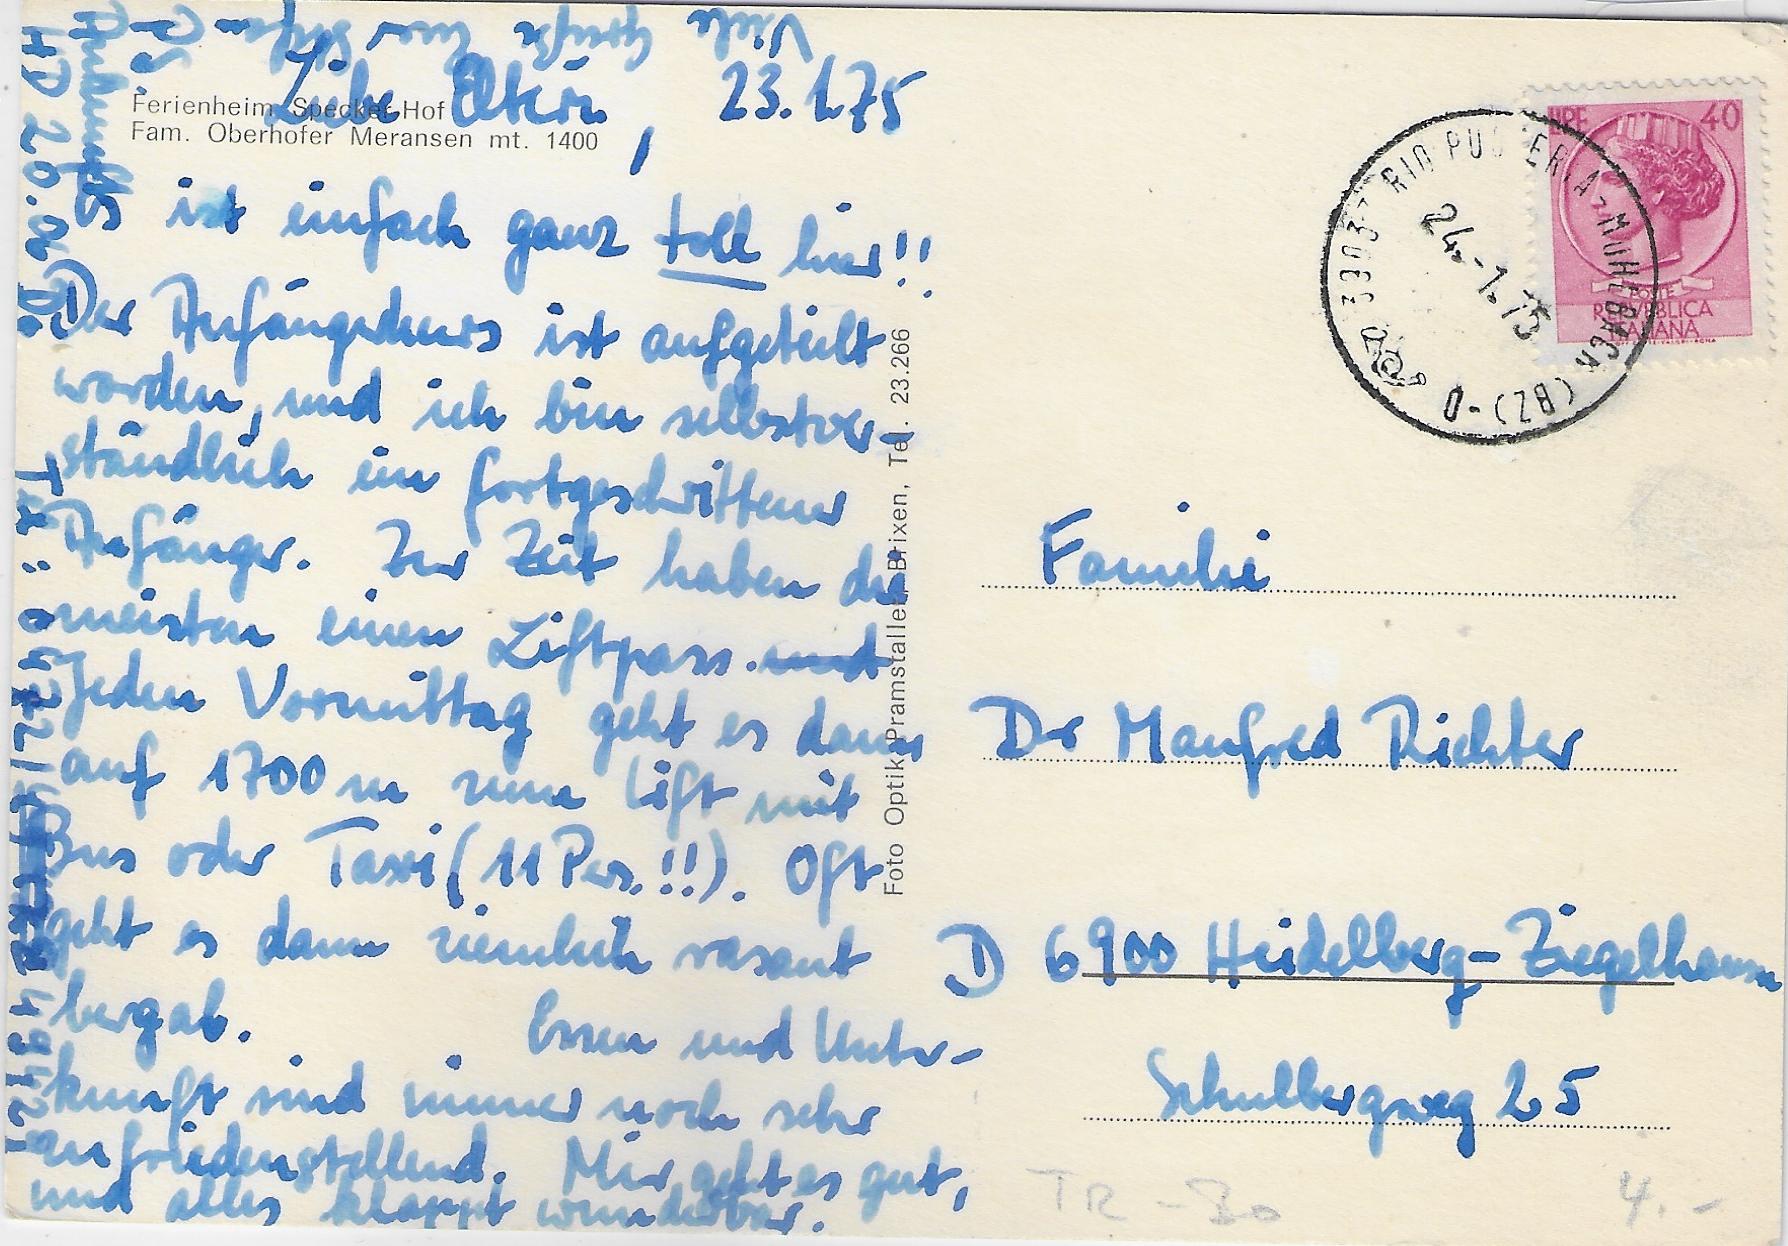 Ferienheim Specker-Hof
Fam. Oberhofer Meransen mt. 1400
Liebe Eltern, 23.1.75
es ist einfach ganz toll hier!!
Der Anfängerkurs ist aufgeteilt
worden, und ich bin selbstver-
ständlich ein fortgeschrittener
Anfänger. Zur Zeit haben die
meisten einen Liftpass. und
Jeden Vormittag geht es dann
auf 1700 m zum Lift mit
Bus oder Taxi (11 Pers.!!). Oft
geht es dann ziemlich rasant
bergab. Essen und Unter-
kunft sind immer noch sehr
zufriedenstellend. Mir geht es gut,
und alles klappt wunderbar.
Viele Grüße von
PS. Ankunft
HD 20.06
Tel.: 0472/
49421
Foto Optik Pramstaller Brixen, Tel. 23.266
LIRE 40
POSTE
REPVBBLICA
ITALIANA
39037 RIO PUSTERIA-MÜHLBACH (BZ)-D
24.-1.75
Familie
Dr Manfred Richter
D 6900 Heidelberg-Ziegelhausen
Schulbergweg 25
TR-Bo
4.-